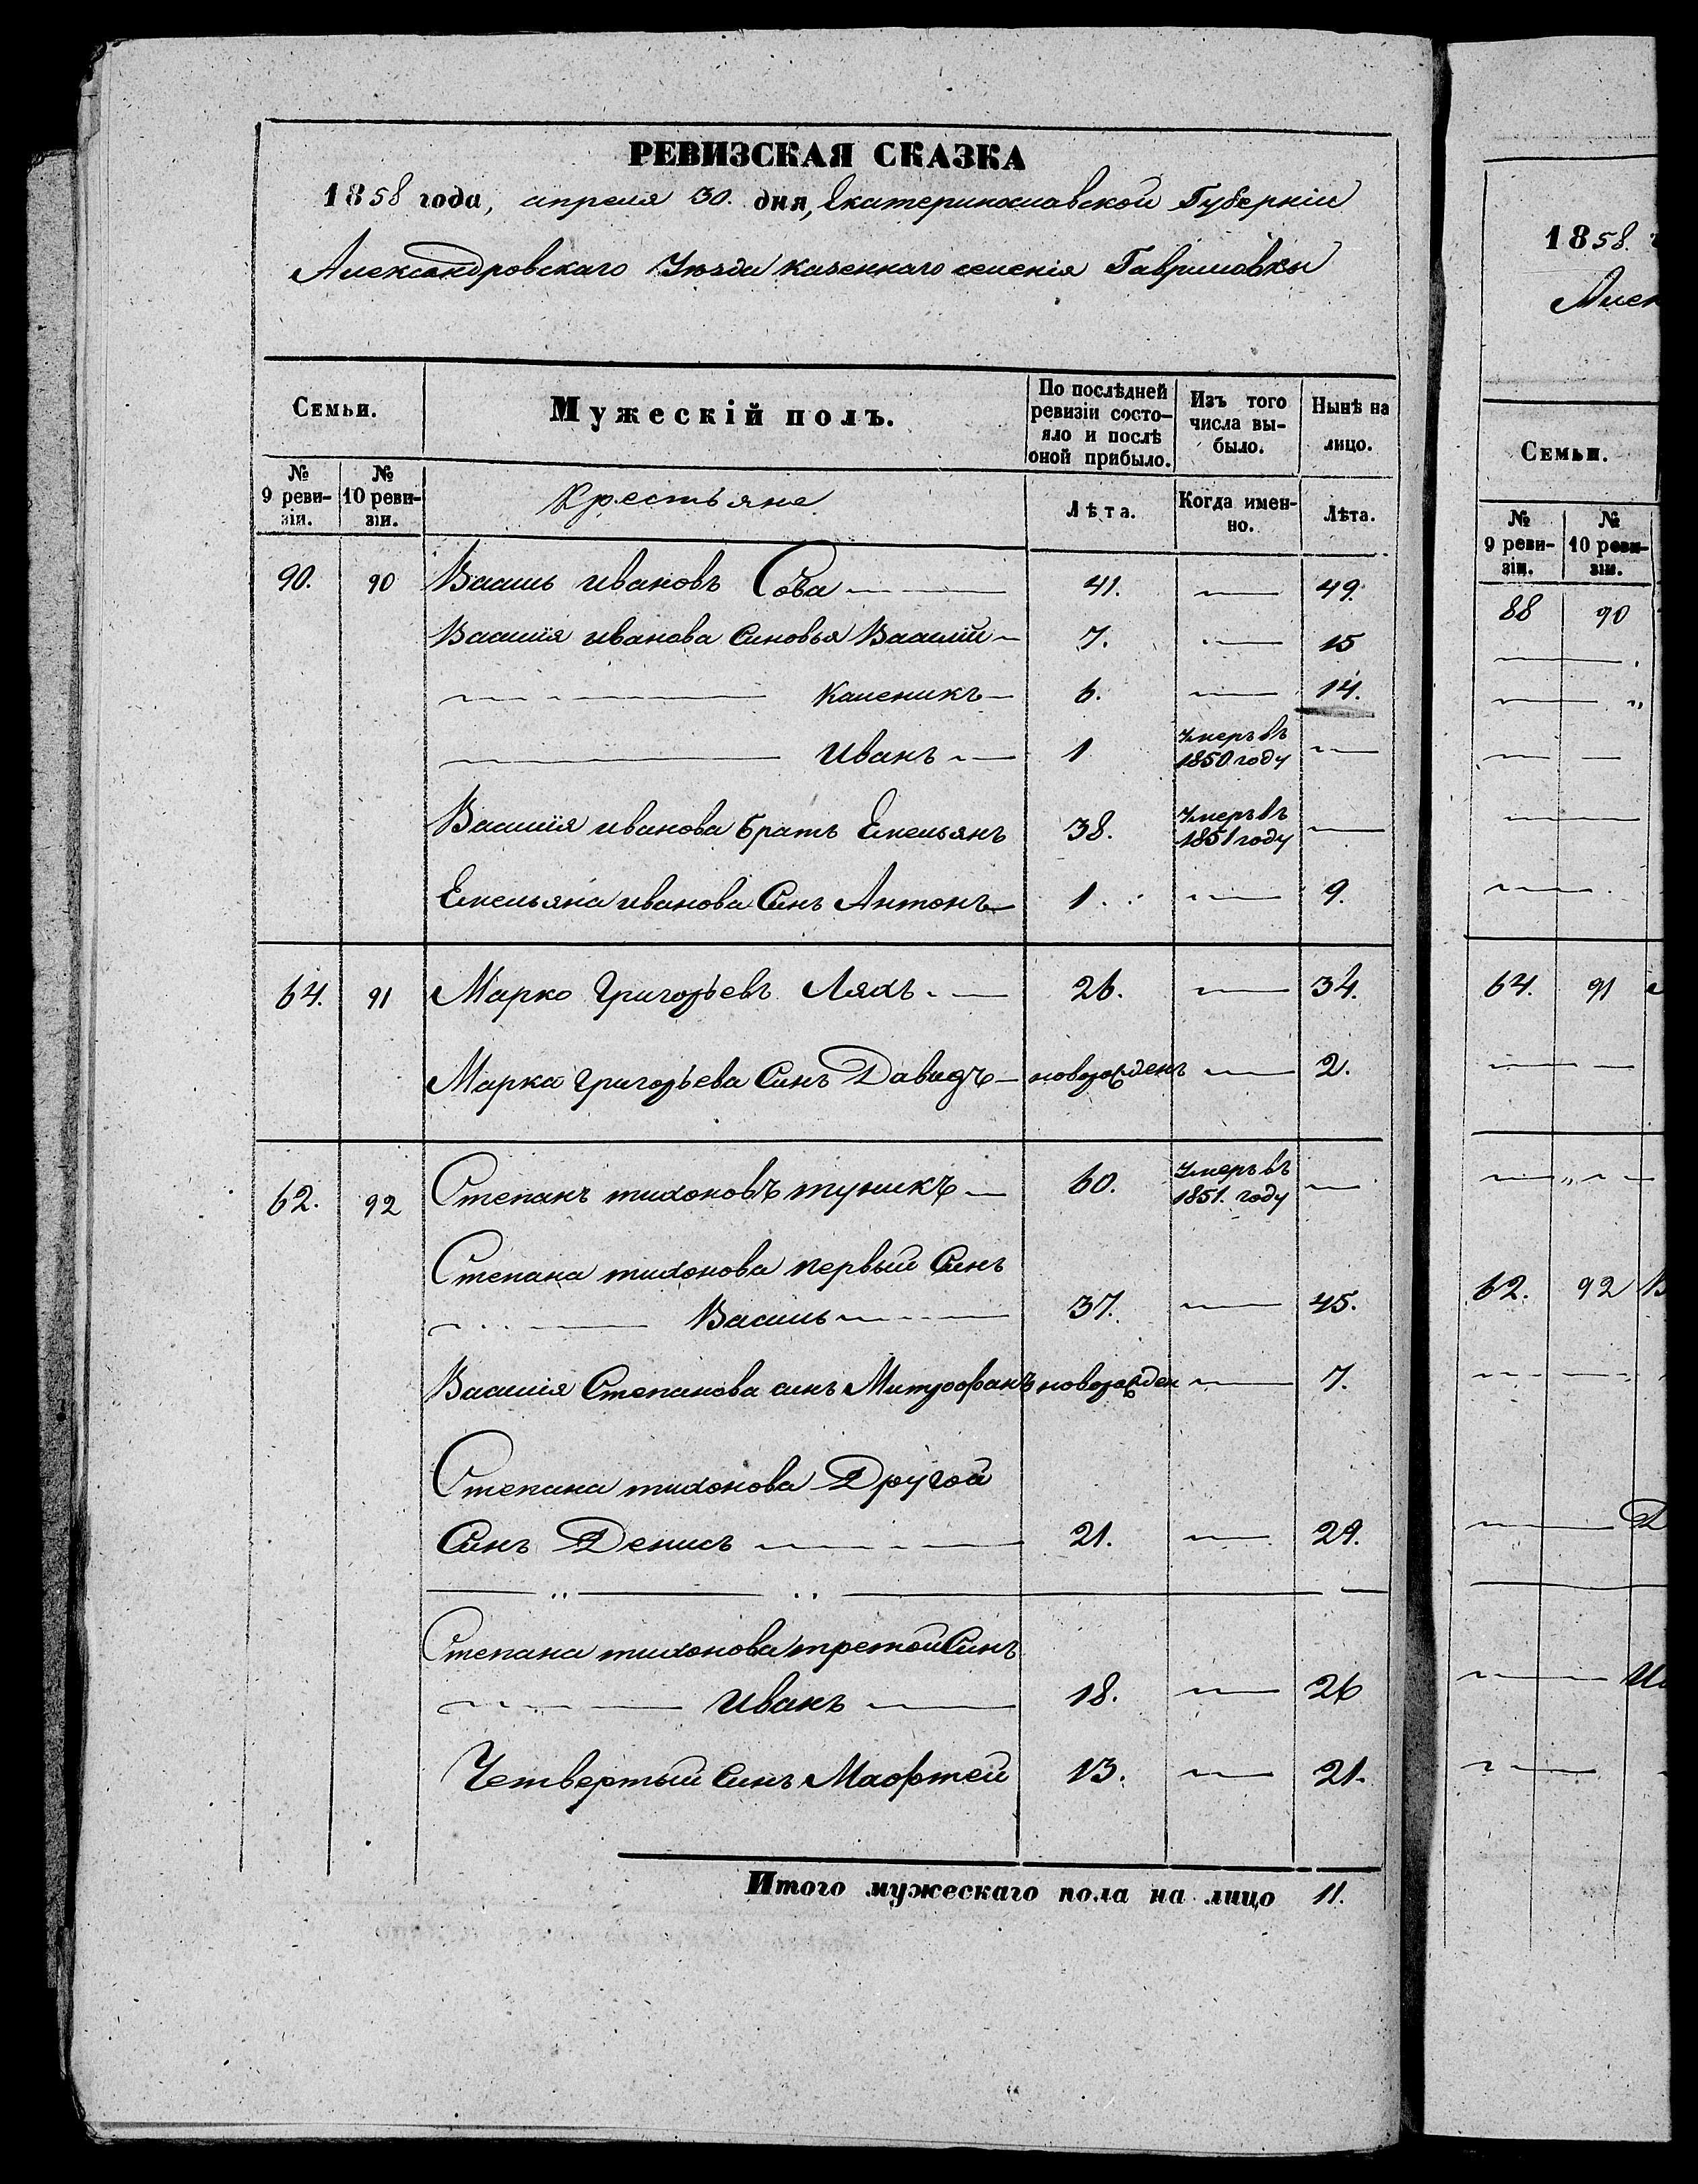 РЕВИЗСКАЯ СКАЗКА
1858 года, апреля 30. дня, Екатеринославской Губерніи
Александровскаго Уезда казеннаго селенія Гавриловки
Семьи. Мужескій полъ. По послѣдней ревизіи состо-яло и послѣ оной прибыло. Изъ того числа вы-было. Нынѣ на лицо.
№ 9 реви-зіи. № 10 реви-зіи. Крестьяне Лѣта. Когда имен-но. Лѣта.
90. 90 Василь ивановъ Сова 41. — 49.
Василія иванова Синовья Василій 7. — 15
Каленикъ 6. — 14.
Иванъ 1 Умеръ въ 1850 году —
Василія иванова братъ Емельянъ 38. Умеръ въ 1851 году —
Емельяна иванова Синъ Антонъ 1. — 9.
64. 91 Марко Григорьевъ Ляхъ 26. — 34.
Марка Григорьева Синъ Давидъ новорожденъ — 2.
62. 92 Степанъ тихоновъ 60. Умеръ въ 1851. году —
Степана тихонова первый Синъ
Василь 37. — 45.
Василія Степанова синъ Митрофанъ новорожден — 7.
Степана тихонова Другой
Синъ Денисъ 21. — 29.
Степана тихонова третой Синъ
Иванъ 18. — 26
Четвертый Синъ Маофтей 13. — 21.
Итого мужескаго пола на лицо 11.
1858.
Семьи.
№ 9 реви-зіи. № 10 реви-зіи.
88 90
64. 91
62. 92